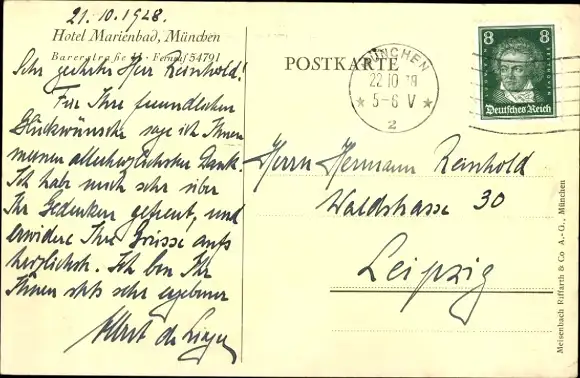 21.10.1928.
Hotel Marienbad, München
Barerstraße 11 · Fernruf 54791
Sehr geehrter Herr Reinhold!
Für Ihre freundlichen
Glückwünsche sage ich Ihnen
meinen allerherzlichsten Dank.
Ich habe mich sehr über
Ihr Gedenken gefreut, und
erwidere Ihre Grüsse aufs
herzlichste. Ich bin Ihr
Ihnen stets sehr ergebener
POSTKARTE
MÜNCHEN
22.10.28
5-6 V
2
8 8
Deutsches Reich
Herrn Hermann Reinhold
Waldstrasse 30
Leipzig
Meisenbach Riffarth & Co A.-G., München